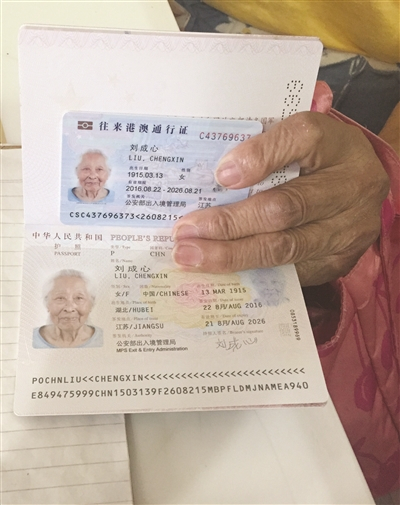 往来港澳通行证 C43769637
刘成心
LIU, CHENGXIN
1915.03.13 女
2016.08.22 - 2026.08.21
公安部出入境管理局 江苏
CSC437696373<2608215
中华人民共和国 PEOPLE'S REPU
护照
PASSPORT
P CHN
刘成心
LIU, CHENGXIN
女/F 中国/CHINESE 13 MAR 1915
湖北/HUBEI 22 8月/AUG 2016
江苏/JIANGSU 21 8月/AUG 2026
公安部出入境管理局
MPS Exit & Entry Administration
刘成心
POCHNLIU<<CHENGXIN<<<<<<<<<<<<<<<<<<<<<<<<<<
E849475999CHN1503139F2608215MBPFLDMJNAMEA940